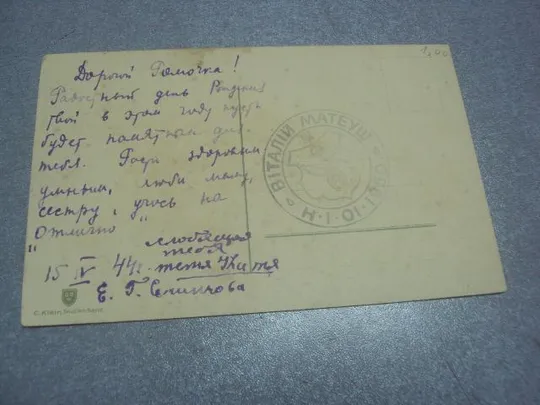 1,00
Дорогой Ромочка!
Радостный день Рожденья
твой в этом году пусть
будет памятным для
тебя. Расти здоровым
умным, люби маму,
сестру, учись на
"отлично"
любящая
тебя
15 V 44г. тётя Катя
Е. Г.
ВІТАЛІЙ МАТЕУШ
Н-1-01-1980